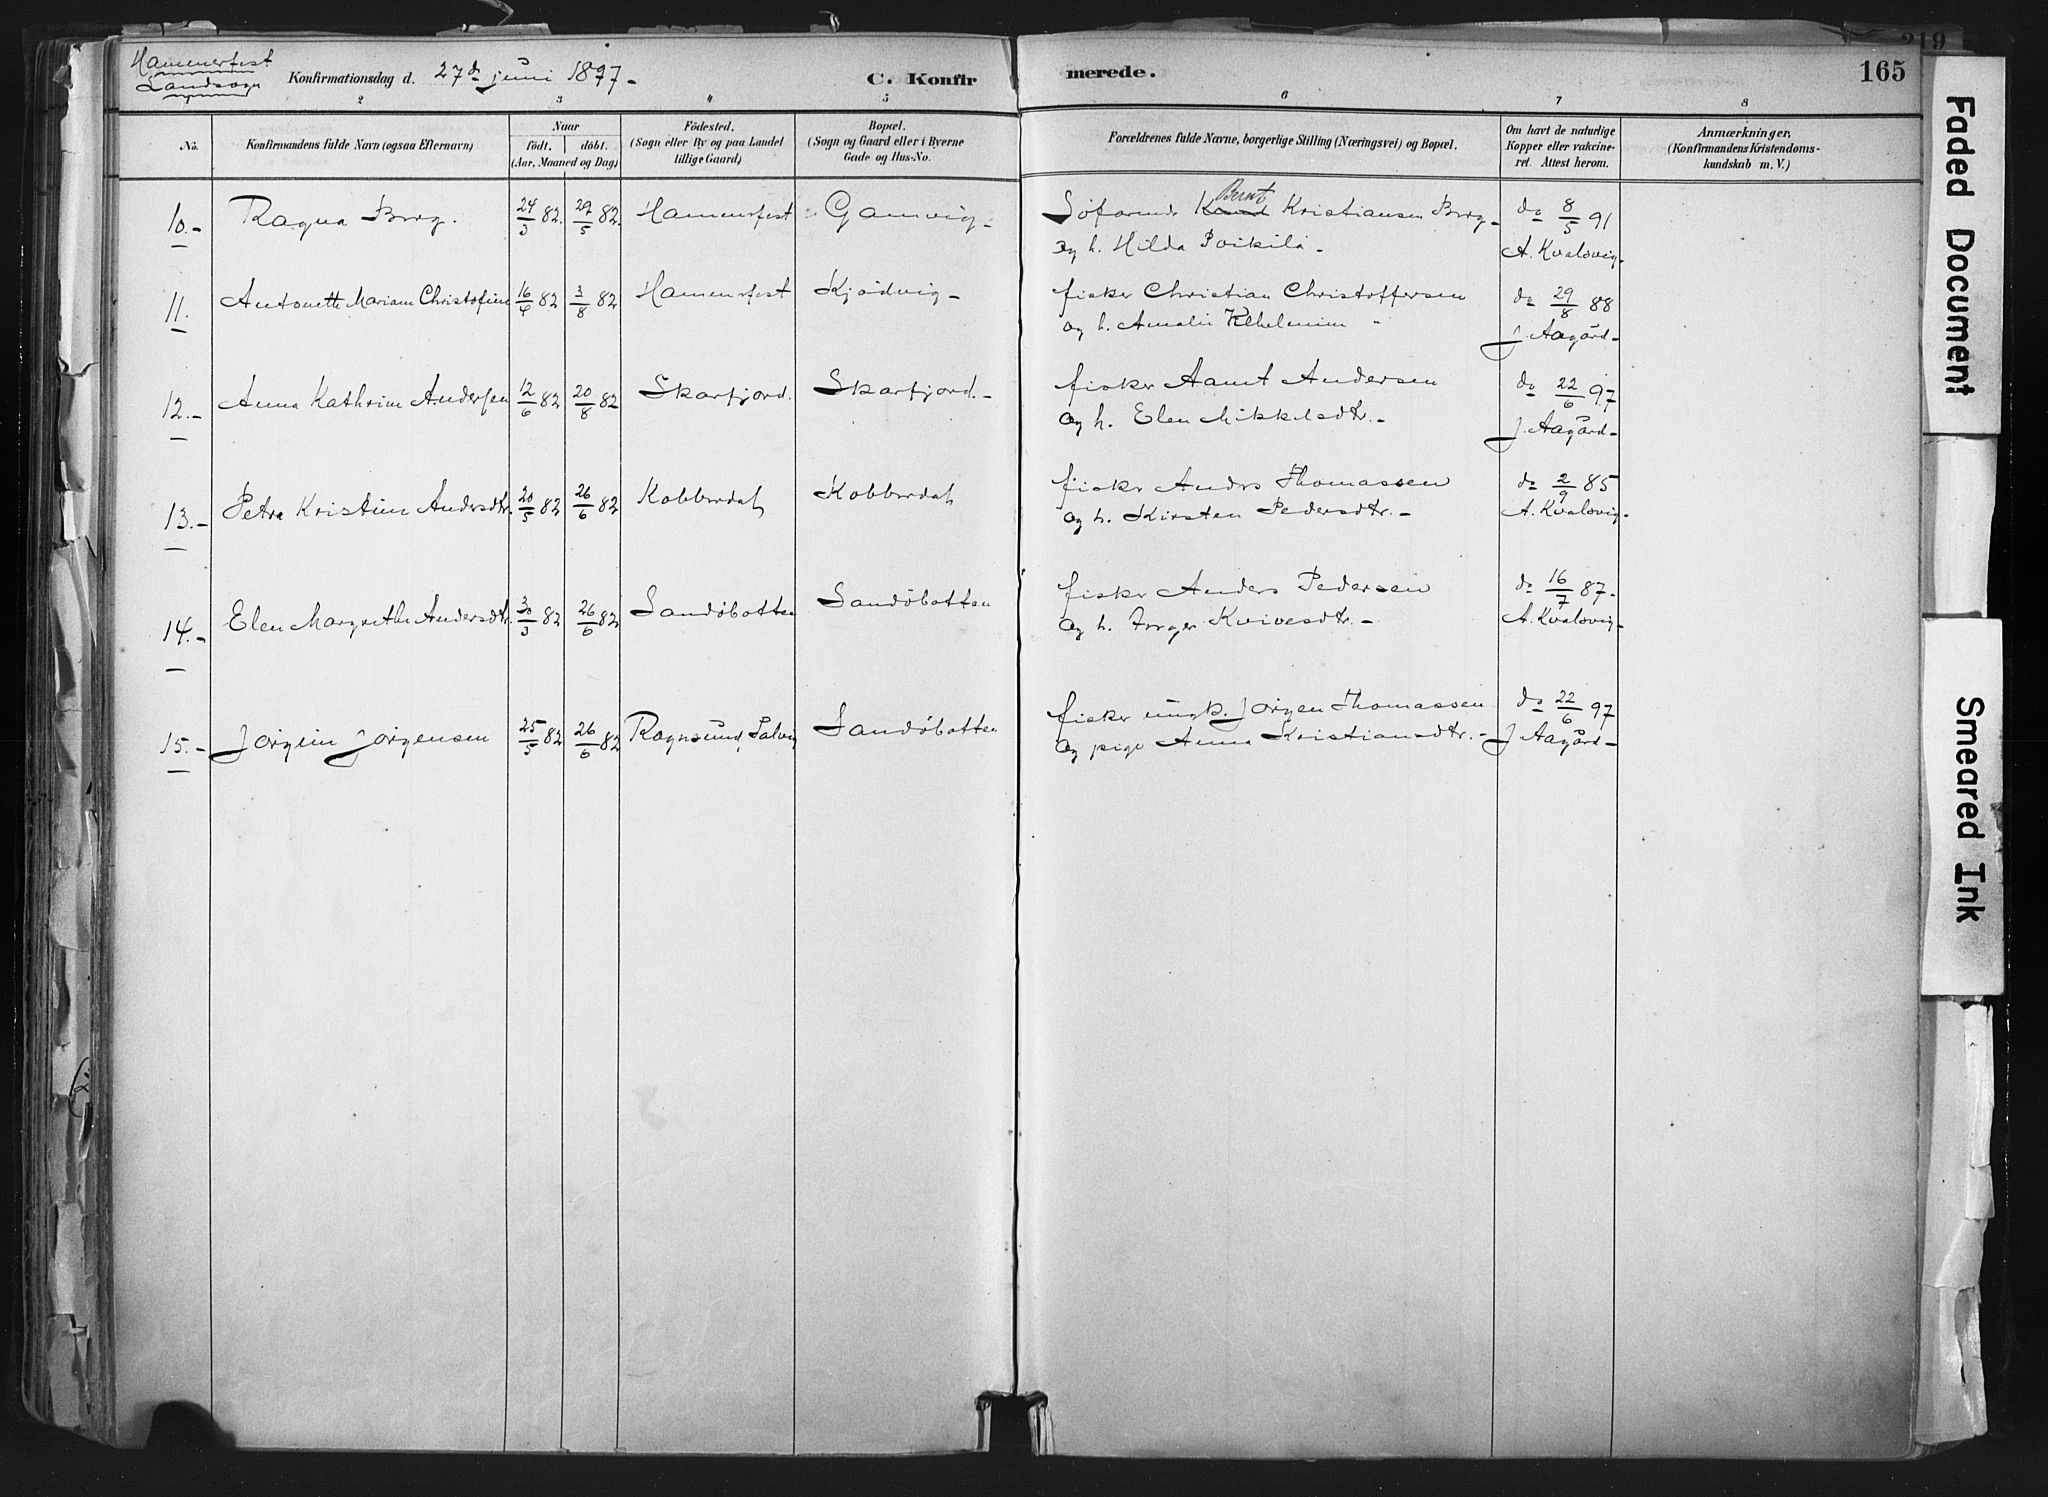 Hammerfest
Landsogn
Konfirmationsdag d. 27de juni 1897.
C. Konfirmerede.
219
165
2 3 4 5 6 7 8
No.
Konfirmandens fulde Navn (ogsaa Efternavn)
Naar
født. døbt.
(Aar, Maaned og Dag)
Fødested.
(Sogn eller By og paa Landet
tillige Gaard)
Bopæl.
(Sogn og Gaard eller i Byerne
Gade og Hus-No.
Forældrenes fulde Navne, borgerlige Stilling (Næringsvei) og Bopæl.
Om havt de naturlige
Kopper eller vakcine-
ret. Attest herom.
Anmærkninger.
(Konfirmandens Kristendoms-
kundskab m. V.)
10.- Ragna Borg. 24/3 82. 29/5 82. Hammerfest Gamvig- Søfarende Bernt Kristiansen Borg- do 8/5 91
og h. Hilda Poikila - A. Kvalsvig-
11. Antonette Mariam 16/4 82 3/8 82 Hammerfest Kjødvig- fisker Christian Christoffersen do 29/8 88
og h. Amalie J. Aagård-
12.- Anna Kathrine Andersen 12/6 82 20/8 82 Skarfjord. Skarfjord.- fisker Aamt Andersen do 22/6 97
og h. Elen Mikkelsdtr.- J. Aagård-
13.- Petra Kristine Andersdtr. 20/5 82 26/6 82 Kobberdal Kobberdal fisker Anders Thomassen do 2/9 85
og h. Kirsten Pedersdtr.- A. Kvalsvig-
14.- Elen Margrethe Andersdtr. 30/3 82 26/6 82 Sandøbotten Sandøbotten fisker Anders Pedersen do 16/7 87-
og h. Inger Kvivesdtr.- A. Kvalsvig-
15.- Jørgine Jørgensen 25/5 82 26/6 82 Rognsund, Salvig Sandøbotten fisker ungk. Jørgen Thomassen do 22/6 97
og pige Anna Kristiansdtr.- J Aagård-
Faded Document
Smeared Ink